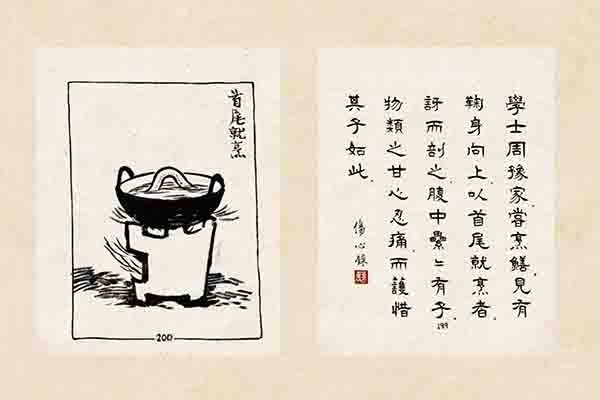 學士周豫家嘗烹鱔.見有
鞠身向上.以首尾就烹者.
訝而剖之.腹中纍〻有子.
物類之甘心忍痛.而護惜
其子如此.
傷心錄
199
首尾就烹
200